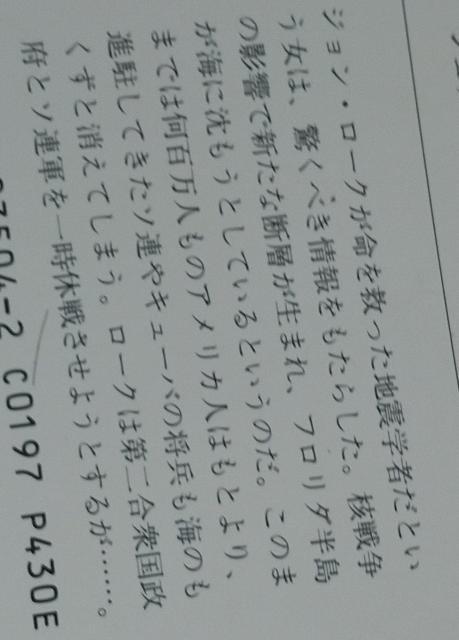 ジョン・ロークが命を救った地震学者だとい
う女は、驚くべき情報をもたらした。核戦争
の影響で新たな断層が生まれ、フロリダ半島
が海に沈もうとしているというのだ。このま
までは何百万人ものアメリカ人はもとより、
進駐してきたソ連やキューバの将兵も海のも
くずと消えてしまう。ロークは第二合衆国政
府とソ連軍を一時休戦させようとするが……。
04-2 C0197 P430E